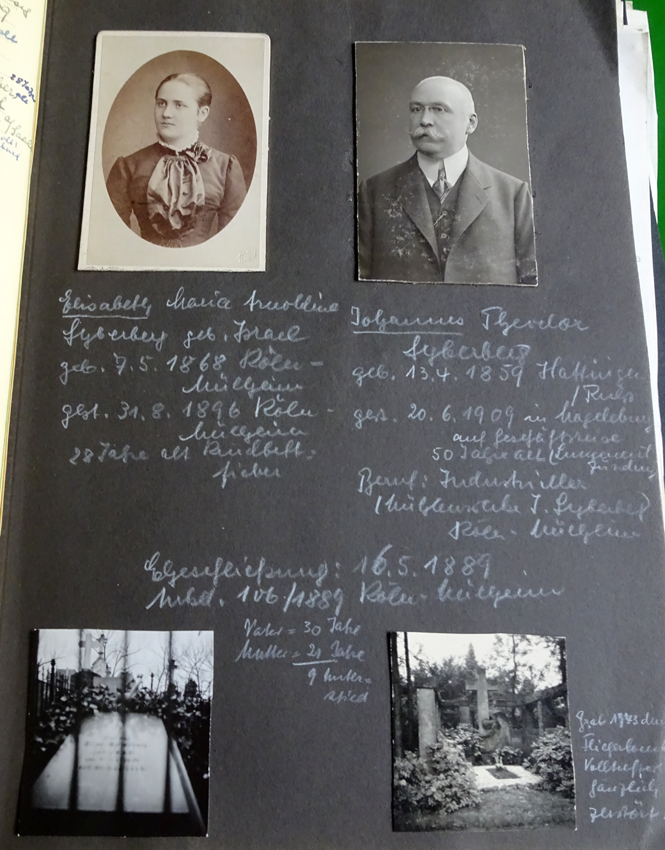 Elisabeth Maria Arnoldine
Syberberg geb. Israel
geb. 7.5. 1868 Köln-
Mülheim
gest. 31.8. 1896 Köln-
Mülheim
28 Jahre alt Kindbett-
fieber
Johannes Theodor
Syberberg
geb. 13.4. 1859 Hattingen
/ Ruhr
gest. 20.6.1909 in Magdeburg
auf Geschäftsreise
50 Jahre alt (Lungenent
zündung
Beruf: Industrieller
(Mühlenwerke J. Syberberg)
Köln-Mülheim
Eheschließung: 16.5. 1889
Urkd. 106/1889 Köln-Mülheim
Vater = 30 Jahre
Mutter = 21 Jahre
9 Unter-
schied
Grab 1943 durch
Fliegerbomben
Volltreffer
gänzlich
zerstört.